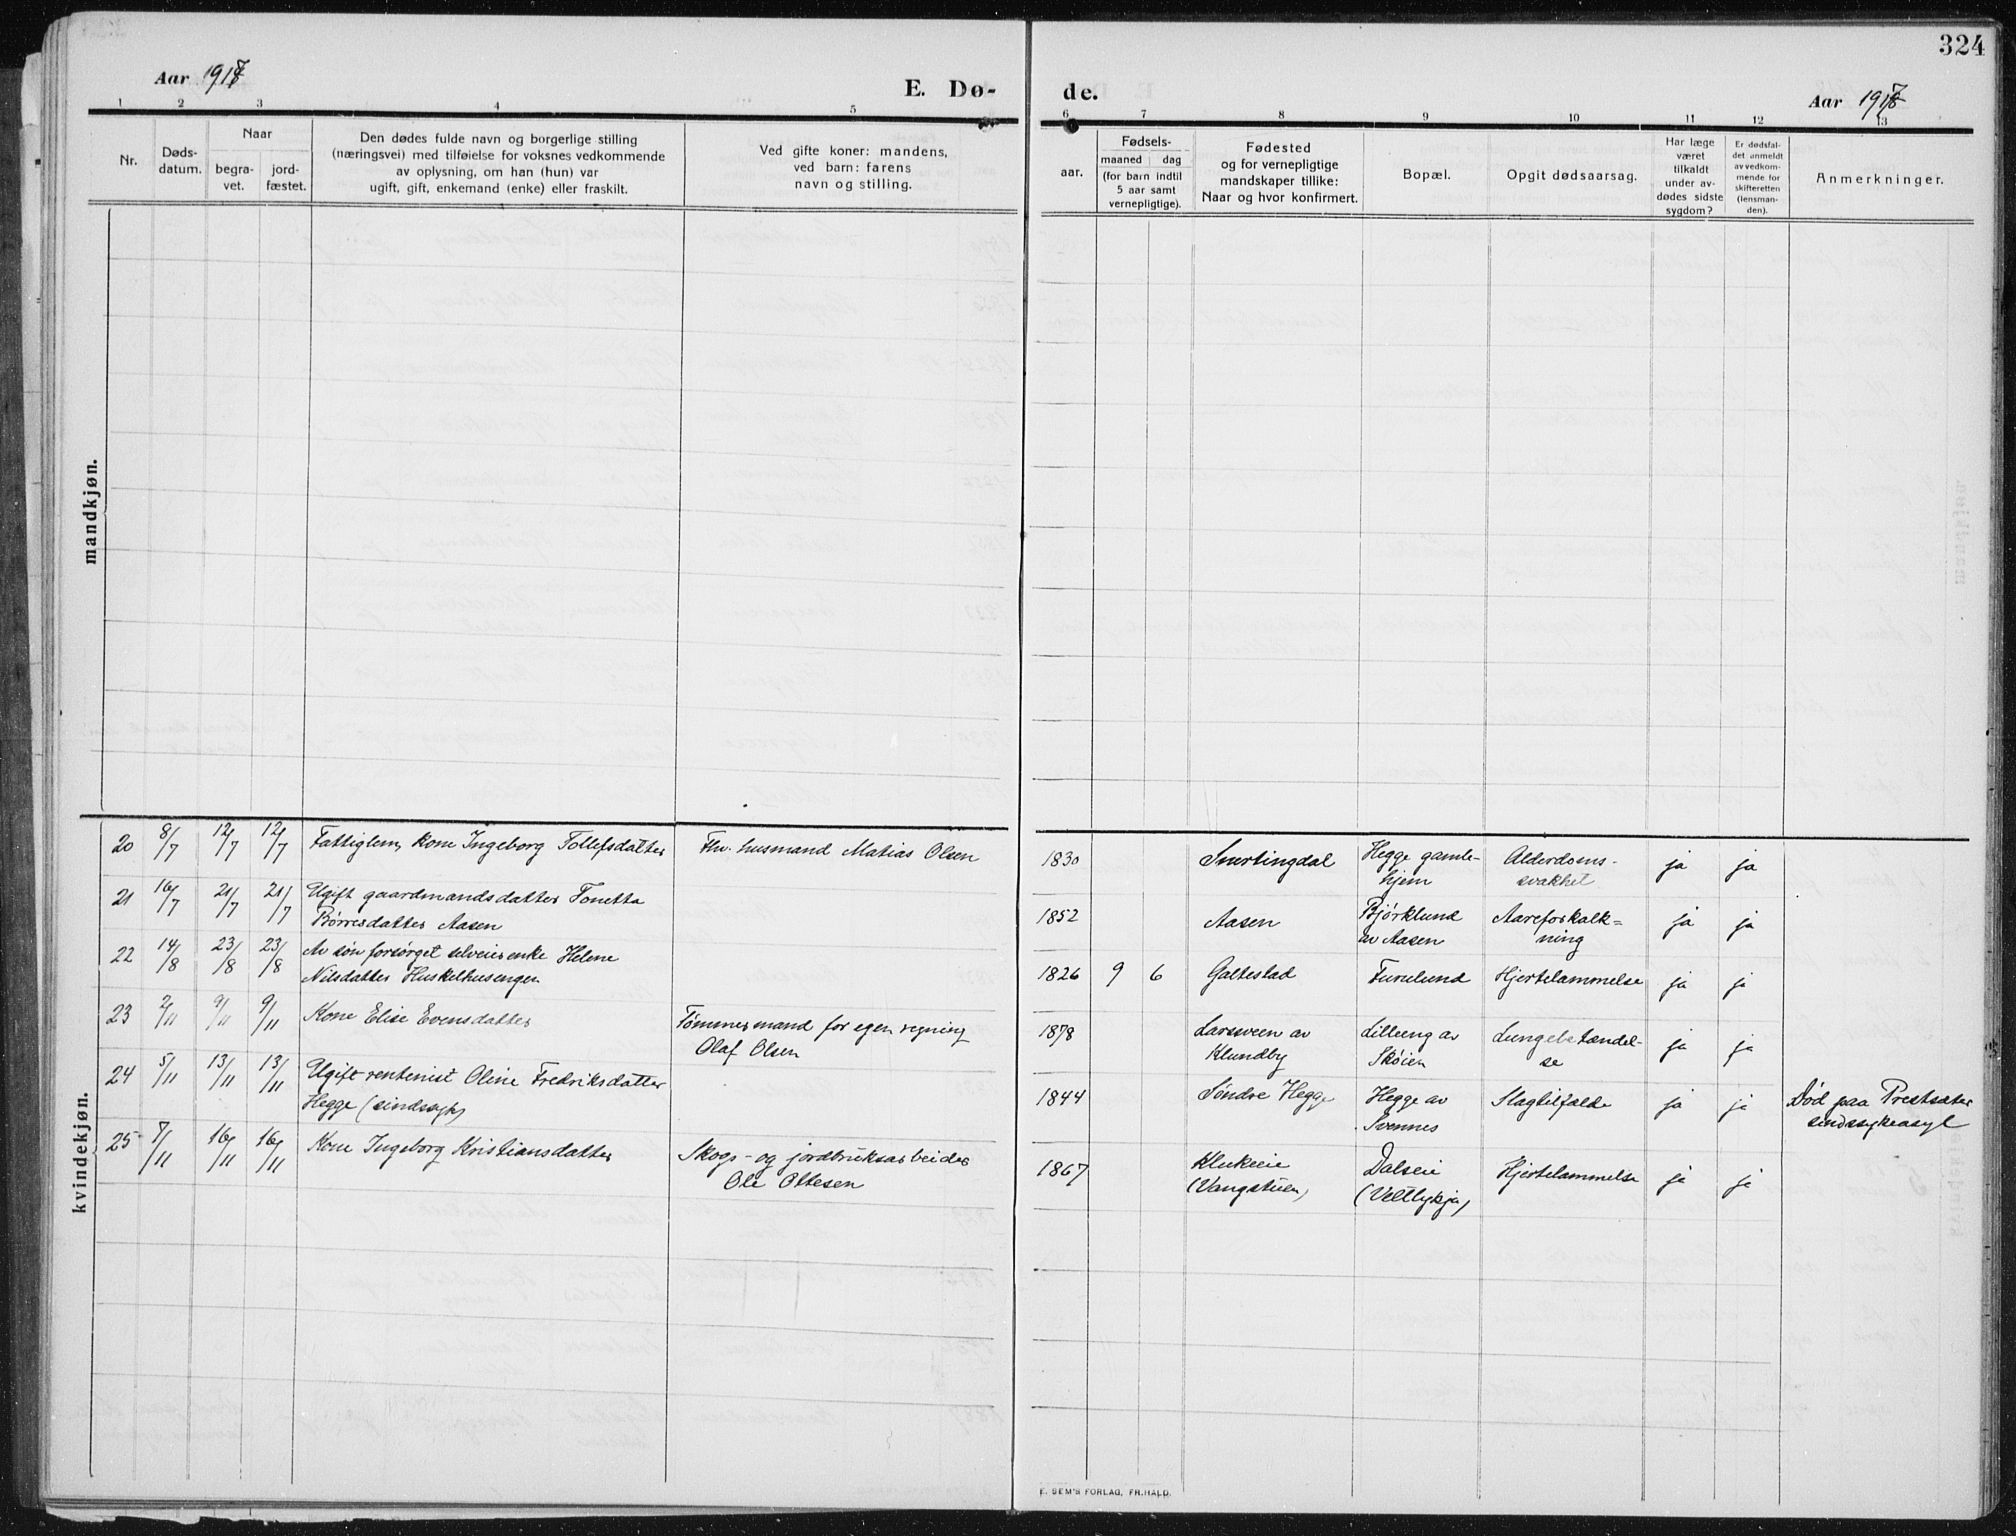 324
Aar 1917
E. Dø-
de.
Aar 1917
1 2 3 4 5 6 7 8 9 10 11 12 13
Nr.
Døds-
datum.
Naar
begra-
vet.
jord-
fæstet.
Den dødes fulde navn og borgerlige stilling
(næringsvei) med tilføielse for voksnes vedkommende
av oplysning, om han (hun) var
ugift, gift, enkemand (enke) eller fraskilt.
Ved gifte koner: mandens,
ved barn: farens
navn og stilling.
aar.
Fødsels-
maaned dag
(for barn indtil
5 aar samt
vernepligtige).
Fødested
og for vernepligtige
mandskaper tillike:
Naar og hvor konfirmert.
Bopæl.
Opgit dødsaarsag.
Har læge
været
tilkaldt
under av-
dødes sidste
sygdom?
Er dødsfal-
det anmeldt
av vedkom-
mende for
skifteretten
(lensman-
den).
Anmerkninger.
mandkjøn.
kvindekjøn.
20 8/7 12/7 12/7 Fattiglem, kone Ingeborg Tollefsdatter Fhv. husmand Matias Olsen 1830 Snertingdal Hegge gamle- Alderdoms- ja ja
hjem svakhet
21 16/7 21/7 21/7 Ugift gaardmandsdatter Tonetta 1852 Aasen Bjørklund Aareforkalk= ja ja
Børresdatter Aasen av Aasen ning
22 14/8 23/8 23/8 Av søn forsørget selveierenke Helene 1826 9 6 Galtestad Furulund Hjertelammelse ja ja
Nilsdatter Huskelhusengen
23 2/11 9/11 9/11 Kone Elise Evensdatter Tømmermand for egen regning 1878 Larsveen av Lilleeng av Lungebetændel- ja ja
Olaf Olsen Klundby Skøien se
24 5/11 13/11 13/11 Ugift rentenist Oline Fredriksdatter 1844 Søndre Hegge Hegge av Slagtilfælde ja ja Død paa Prestsæter
Hegge (sindssyk) Svennes sindssykeasyl
25 7/11 16/11 16/11 Kone Ingeborg Kristiansdatter Skogs- og jordbruksarbeider 1867 Klukeeie Dalseie Hjertelammelse ja ja
Ole Ottesen (Vangstuen) (Veltlykja)
E. SEM'S FORLAG, FR.HALD.